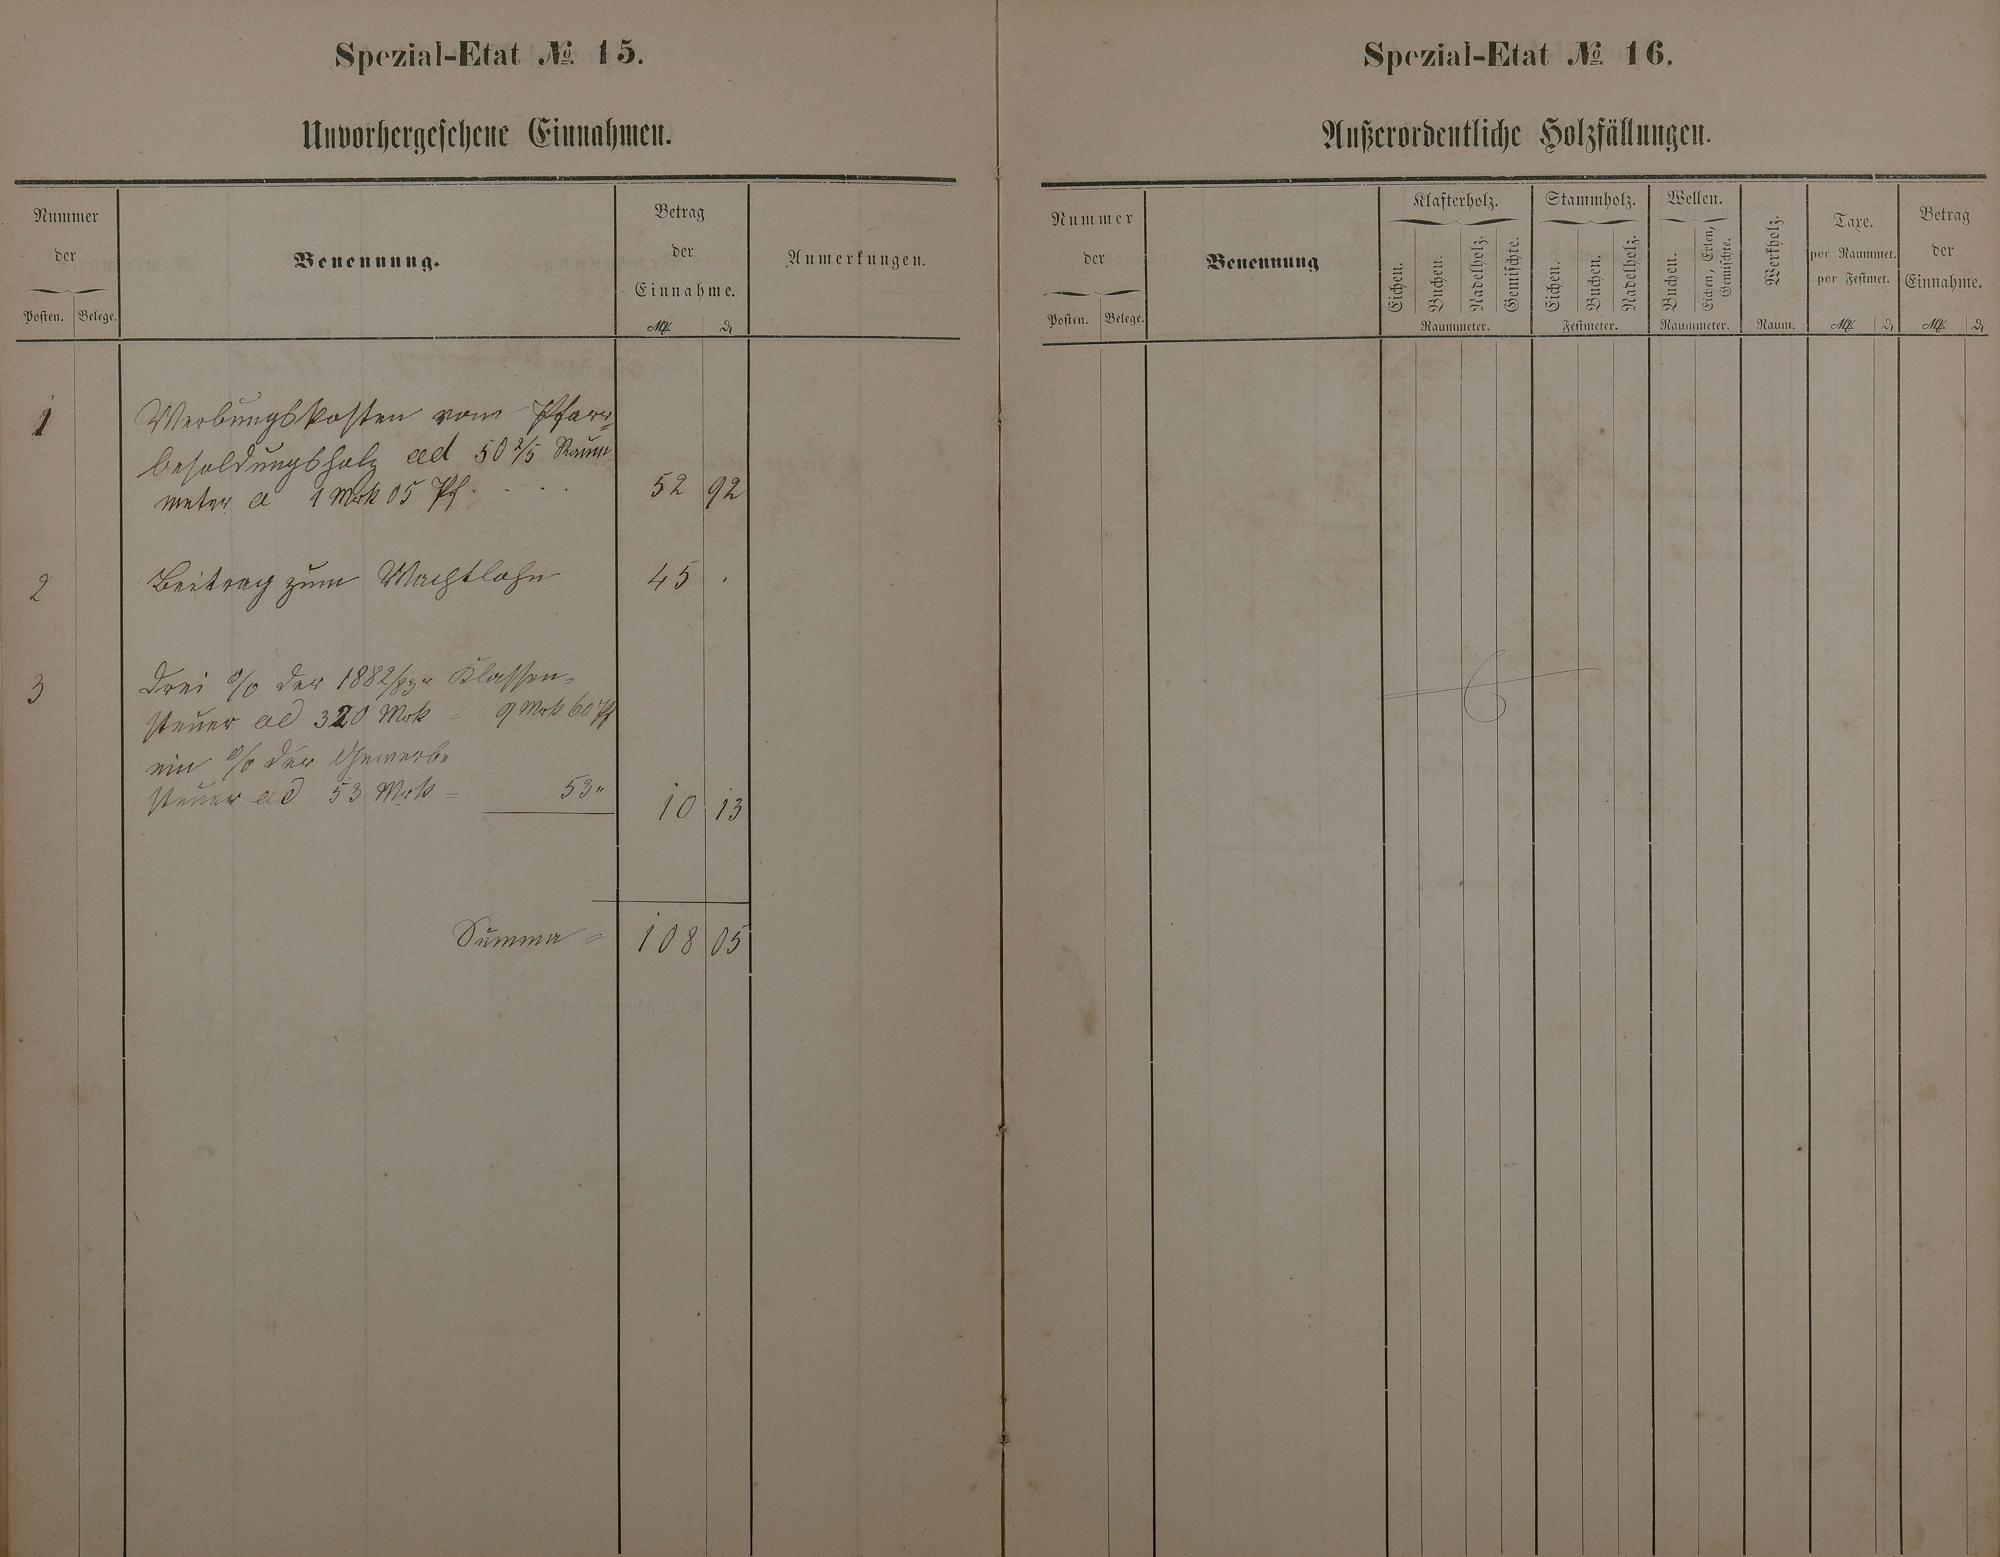 Spezial-Etat № 15.
Unvorhergesehene Einnahmen.
Nummer
der
Posten. Belege.
Benennung.
Betrag
der
Einnahme.
ℳ ₰
Anmerkungen.
1 Werbungskosten vom Pfarr-
besoldungsholz ad 50 2/5 Raum
meter a 1 Mrk 05 Pf. . . . 52 92
2 Beitrag zum Wachtlohn 45 .
3 Drei % der 1882/83r Klassen-
steuer ad 320 Mrk = 9 Mrk 60 Pf
ein % der Gewerbe
steuer ad 53 Mrk = 53 " 10 13
Summa = 108 05
Spezial-Etat № 16.
Außerordentliche Holzfällungen.
Nummer
der
Posten. Belege.
Benennung
Klafterholz.
Eichen. Buchen. Nadelholz. Gemischte.
Raummeter.
Stammholz.
Eichen. Buchen. Nadelholz.
Festmeter.
Wellen.
Buchen. Eichen, Erlen,
Gemischte.
Raummeter.
Werkholz.
Raum.
Taxe.
per Raummet.
per Festmet.
ℳ ₰
Betrag
der
Einnahme.
ℳ ₰